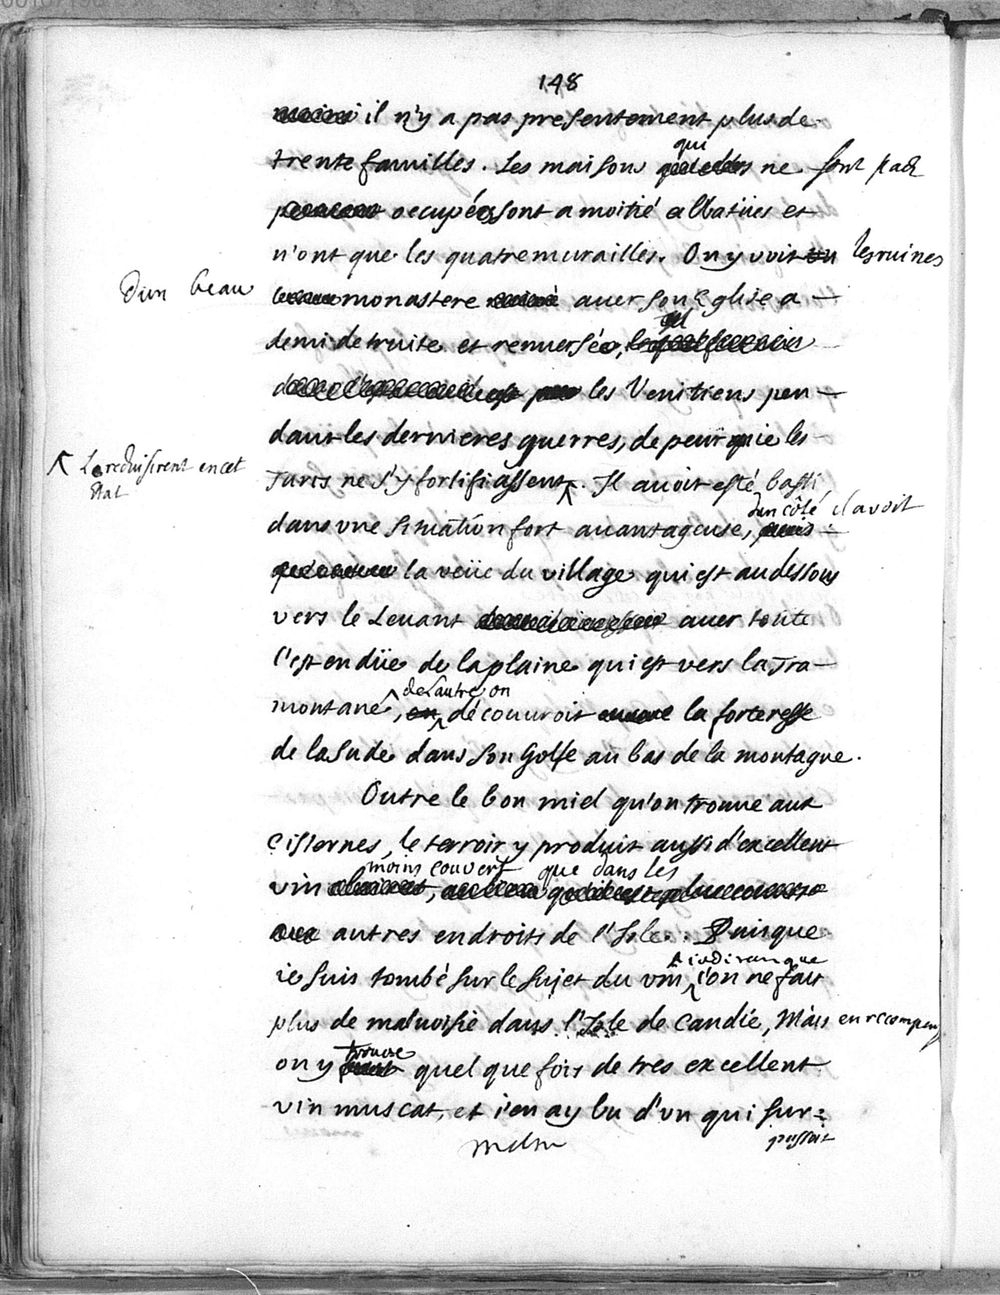 148
il n'y a pas presentement plus de
trente familles. Les maisons qui ne sont pas
occupées sont a moitié abbatües et
n'ont que les quatre murailles. On y voit les ruines
D'un beau monastere auec son Eglise a
demi detruite et renuersée,
les Venitiens pen-
dant les dernieres guerres, de peur que les
Turcs ne s'y fortifiassent. Il auoit esté basti
Le reduisirent en cet
Etat
dans vne situation fort auantageuse, d'un côté il avoit
la veüe du village qui est au dessous
vers le Leuant auec toute
l'estendüe de la plaine qui est vers la Tra-
montane, de l'autre on découuroit la forteresse
de la Sude dans son Golfe au bas de la montagne.
Outre le bon miel qu'on trouue aux
Cisternes, le terroir y produit aussi d'excellent
vin moins couvert que dans les
autres endroits de l'Isle. Puisque
ie suis tombé sur le sujet du vin, ie dirai que l'on ne fait
plus de maluoisie dans l'Isle de Candie, Mais en recompense
on y trouve quelquefois de tres excellent
vin muscat, et i'en ay bu d'vn qui sur-
passoit